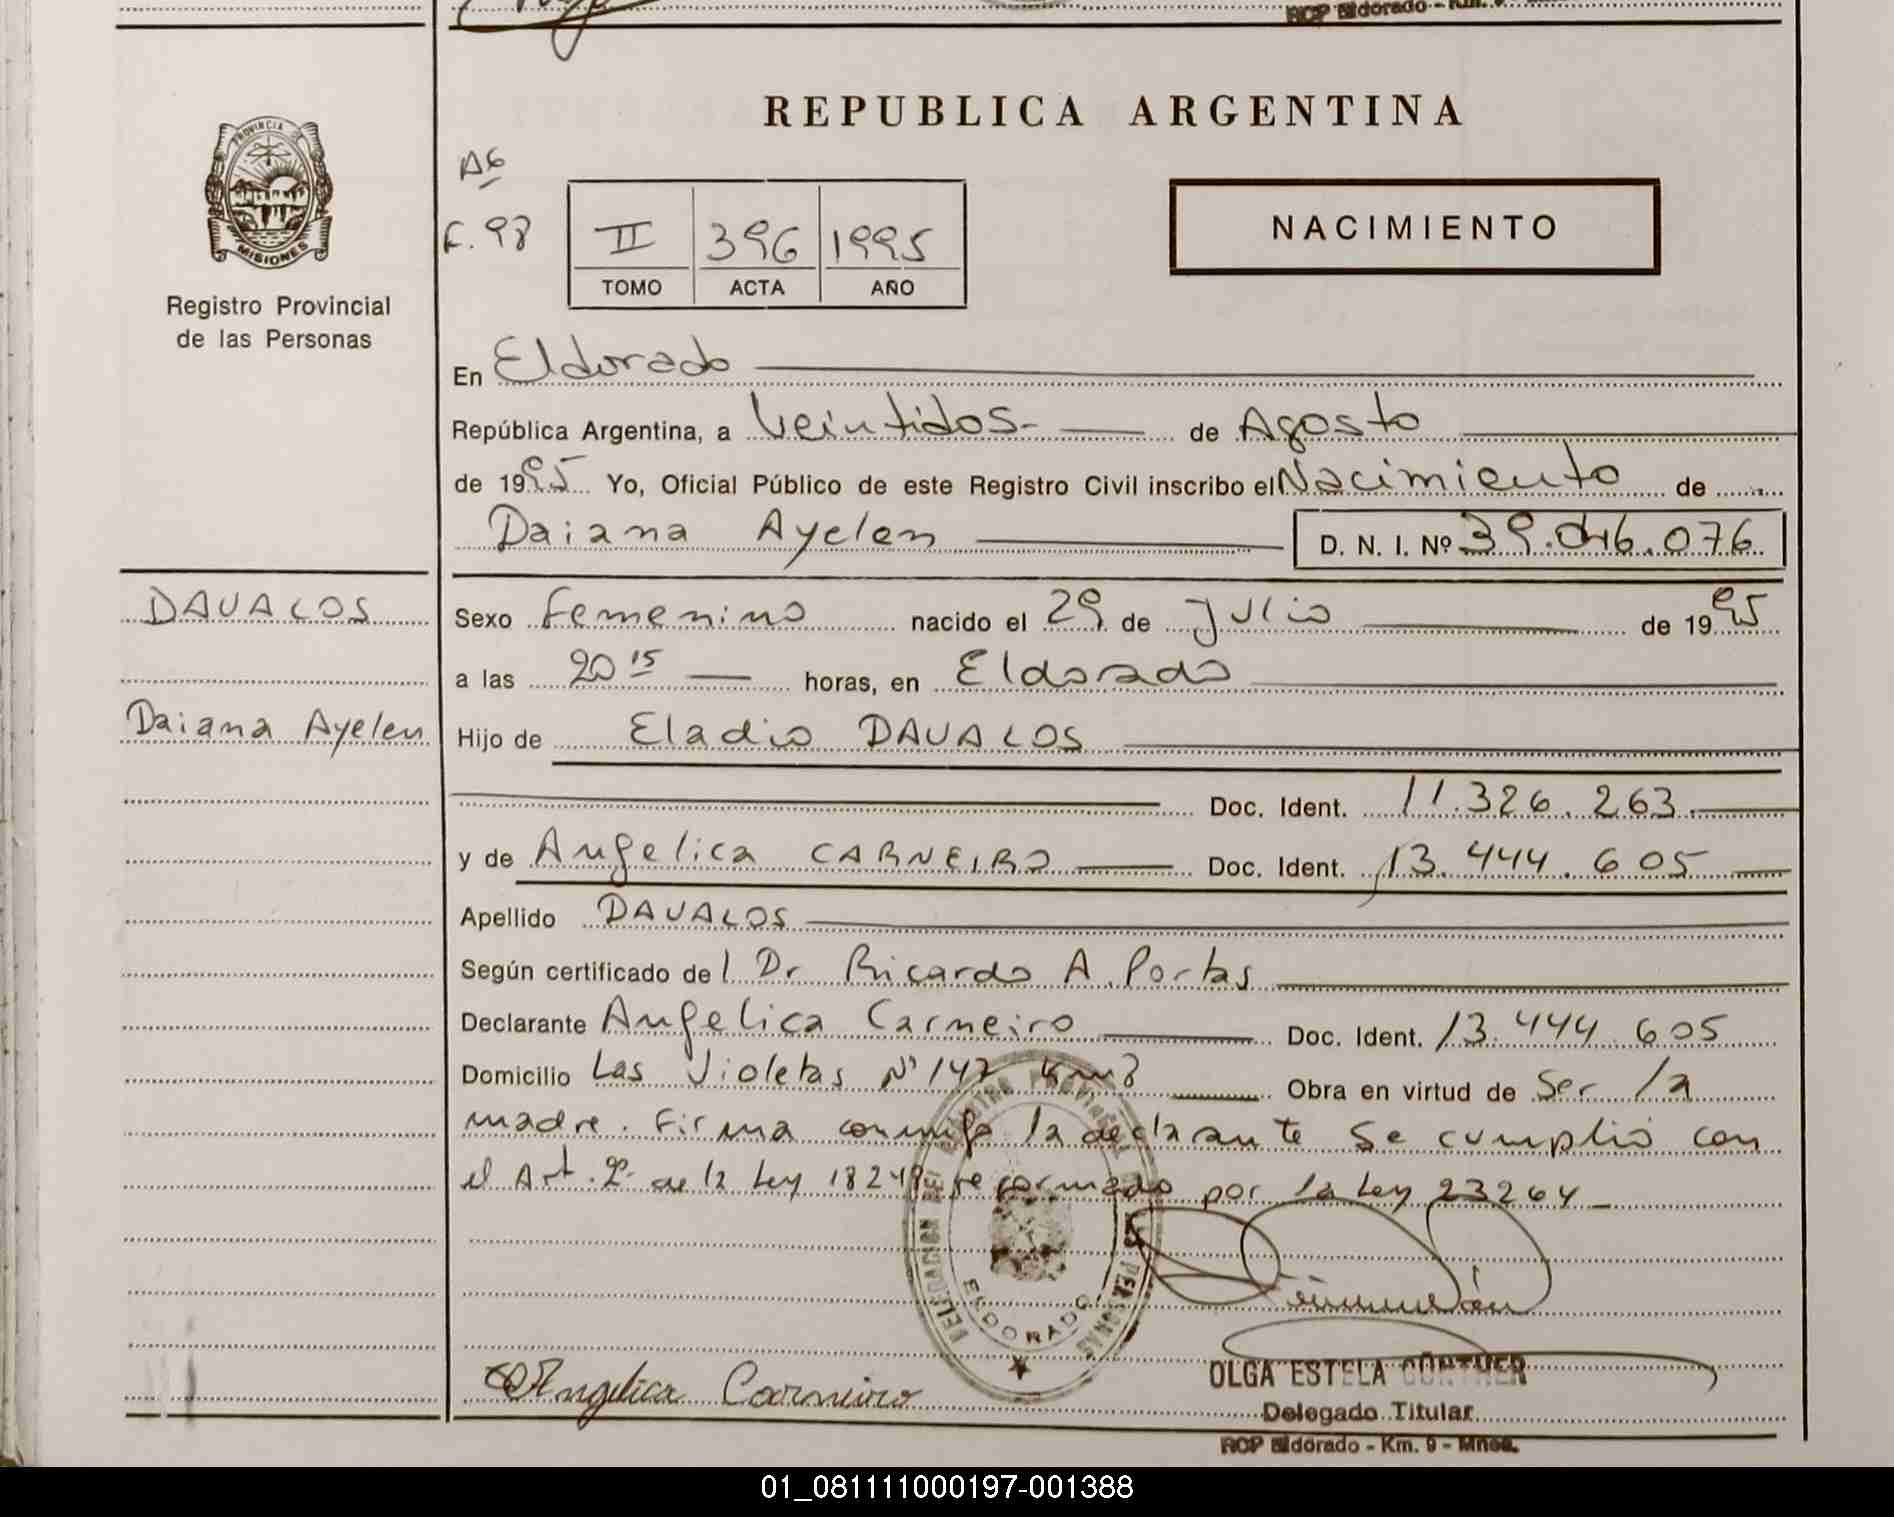 RCP Eldorado - Km. 9
REPUBLICA ARGENTINA
PROVINCIA
MISIONES
Registro Provincial
de las Personas
A6
F. 98
II 396 1995
TOMO ACTA AÑO
NACIMIENTO
En Eldorado
República Argentina, a Veintidos - de Agosto
de 1995 Yo, Oficial Público de este Registro Civil inscribo el Nacimiento de
Daiana Ayelen D. N. I. Nº 39.046.076
DAVALOS
Sexo Femenino nacido el 29 de Julio de 1995
a las 20 15 horas, en Eldorado
Daiana Ayelen
Hijo de Eladio DAVALOS
Doc. Ident. 11.326.263.
y de Angelica CARNEIRO Doc. Ident. 13.444.605
Apellido DAVALOS
Según certificado del Dr Ricardo A. Portas
Declarante Angelica Carneiro Doc. Ident. 13.444.605
Domicilio Las Violetas Nº 147 Obra en virtud de Ser la
madre. Firma conmigo la declarante Se cumplió con
el Art. 2º de la Ley 18248 reformado por la Ley 23264
DELEGACION DEL REGISTRO PROVINCIAL DE LAS PERSONAS
ELDORADO
Angelica Carneiro
OLGA ESTELA GÜNTHER
Delegado Titular
RCP Eldorado - Km. 9 - Mnes.
01_081111000197-001388